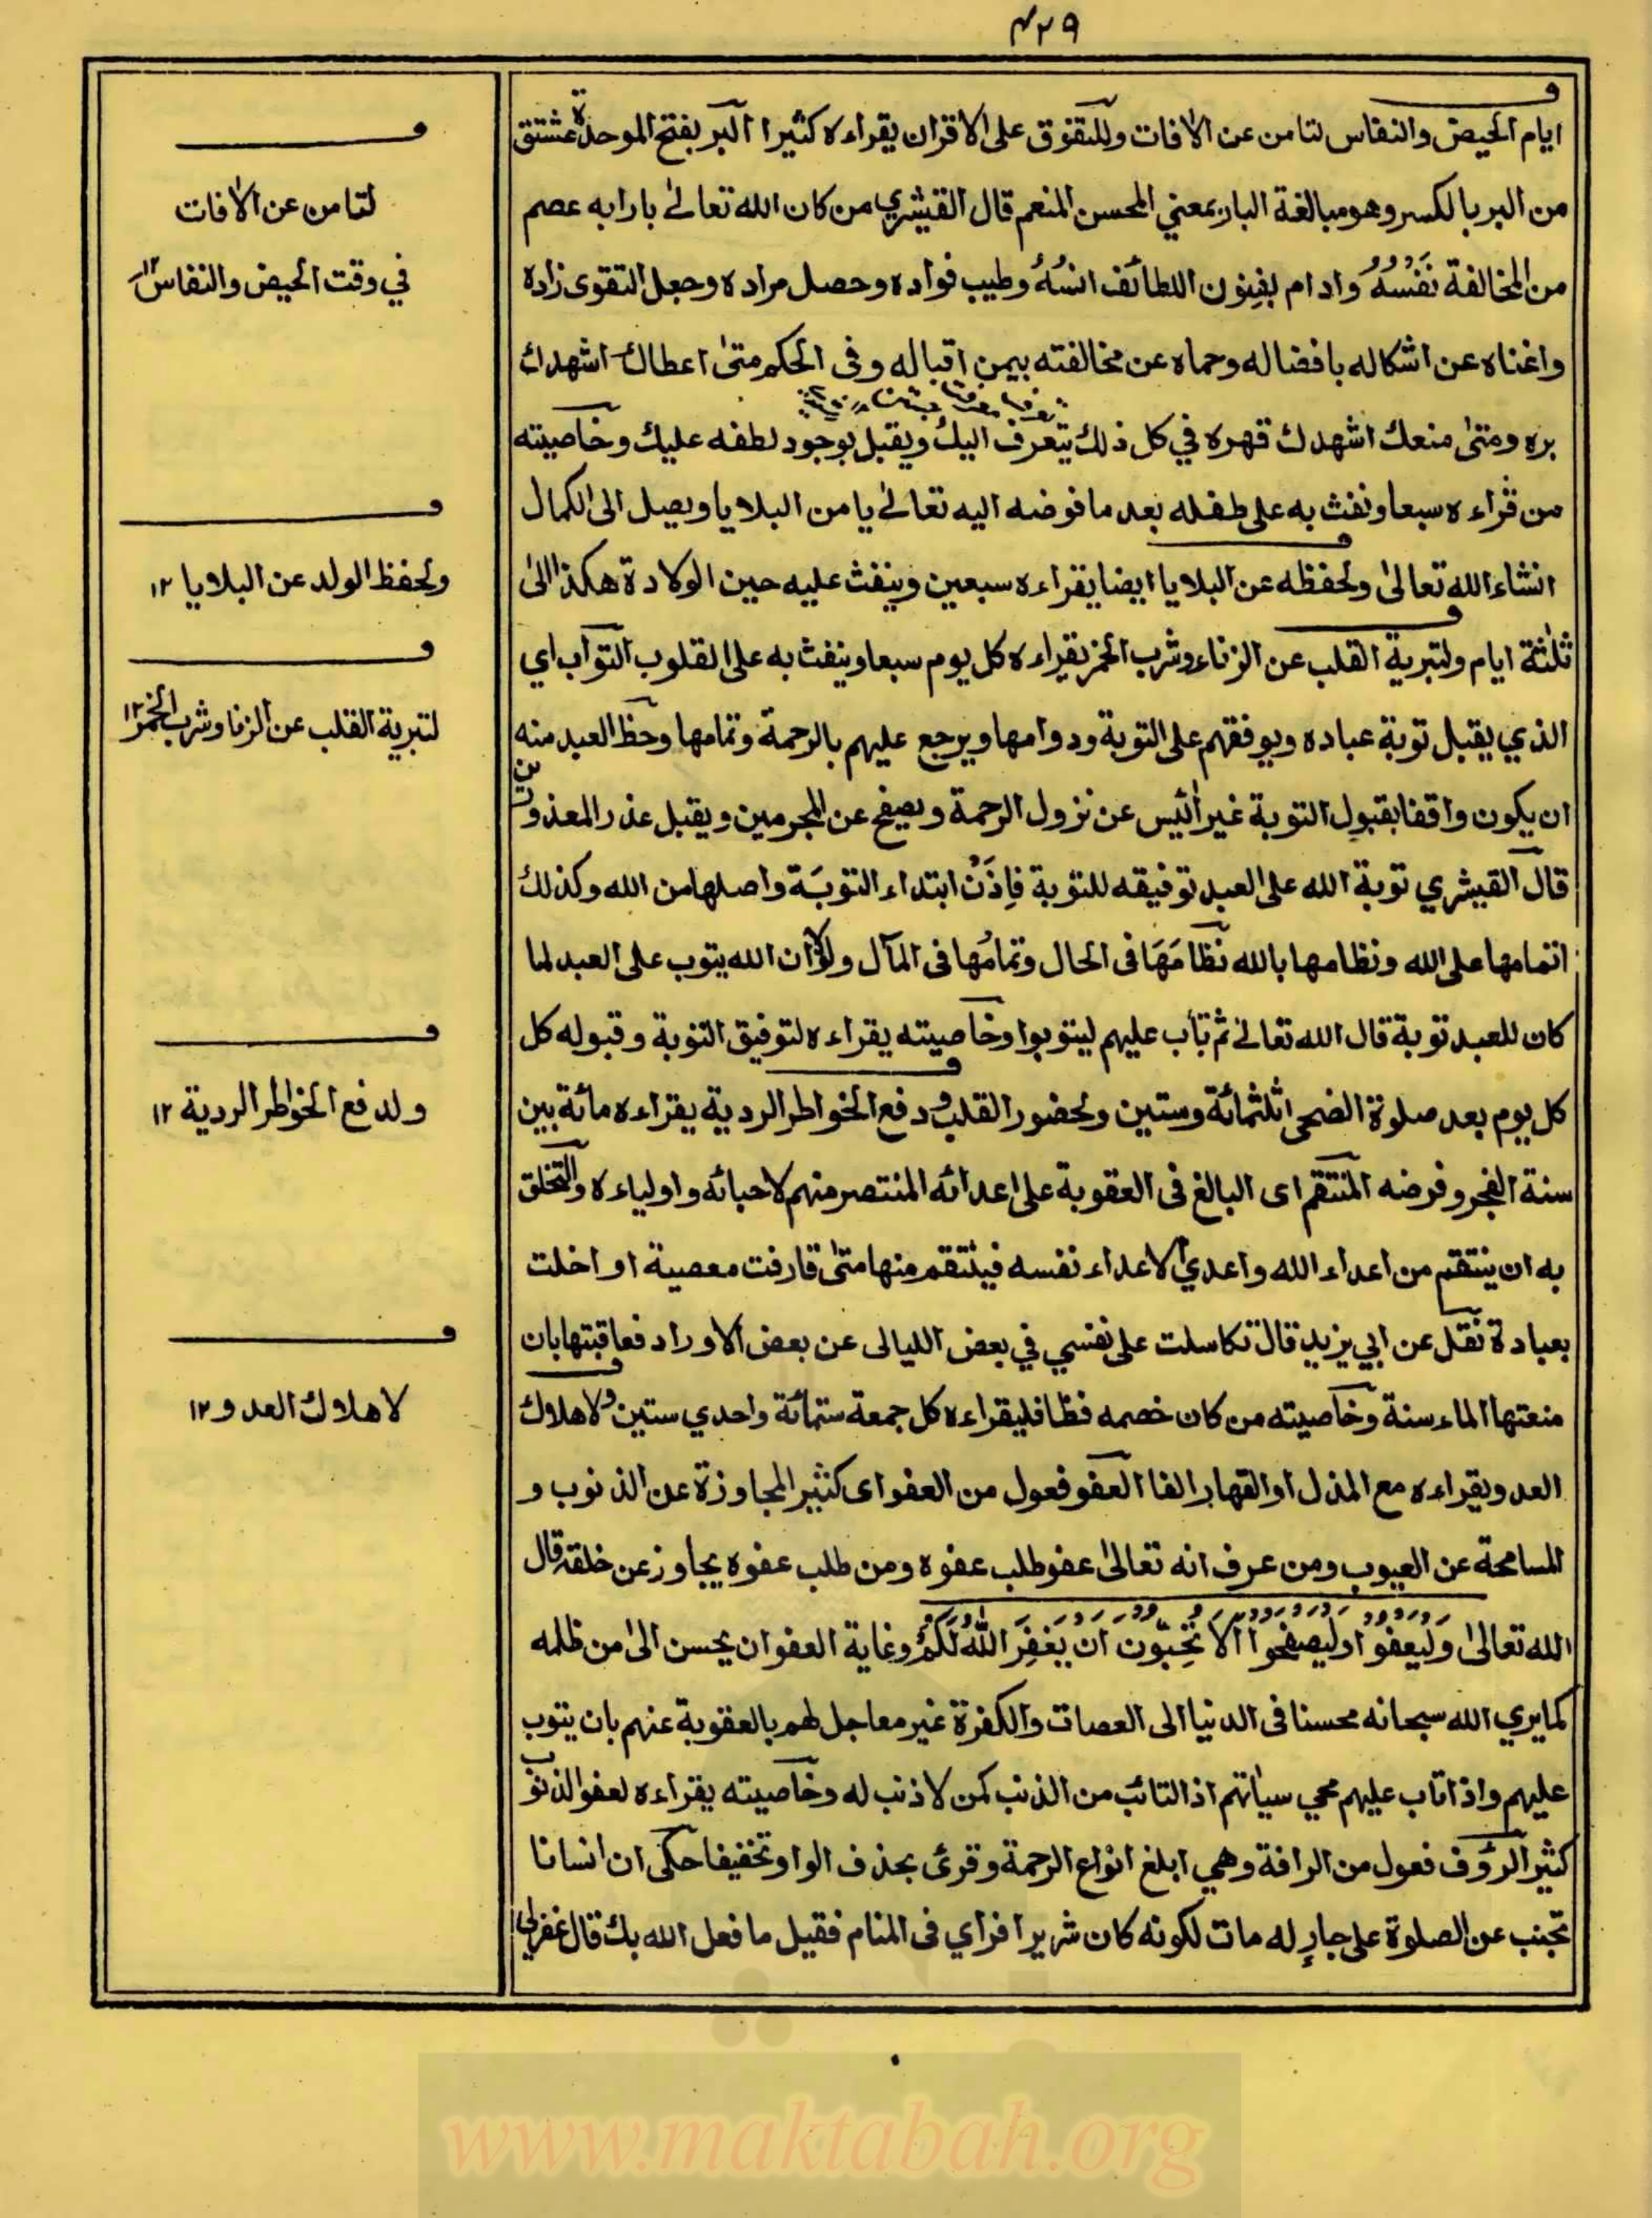 ۴۲۹
ايام الحيض والنفاس لتامن عن الافات وللتفوق على الاقران يقراءه كثيرا البر بفتح الموحدة مشتق
من البر بالكسر وهو مبالغة البار بمعني المحسن المنعم قال القيشري من كان الله تعالى بارا به عصم
من المخالفة نفسه وادام بفنون اللطائف انسه وطيب فواده وحصل مراده وجعل التقوى زاده
واغناه عن اشكاله بافضاله وحماه عن مخالفته بيمن اقباله وفى الحكم متى اعطاك اشهدك
بره ومتى منعك اشهدك قهره في كل ذلك يتعرف اليك ويقبل بوجود لطفه عليك وخاصيته
من قراءه سبعا ونفث به على طفله بعد ما فوضه اليه تعالى يامن البلايا ويصل الى الكمال
انشاء الله تعالى ولحفظه عن البلايا ايضا يقراءه سبعين وينفث عليه حين الولادة هكذا الى
ثلثة ايام ولتبرية القلب عن الزناء وشرب الخمر يقراءه كل يوم سبعا وينفث به على القلوب التواب اي
الذي يقبل توبة عباده ويوفقهم على التوبة ودوامها ويرجع عليهم بالرحمة وتمامها وحظ العبد منه
ان يكون واقفا بقبول التوبة غير ائيس عن نزول الرحمة ويصفح عن المجرمين ويقبل عذر المعذورين
قال القيشري توبة الله على العبد توفيقه للتوبة فاذن ابتداء التوبة واصلها من الله وكذلك
اتمامها على الله ونظامها بالله نظامها فى الحال وتمامها فى المآل ولولا ان الله يتوب على العبد لما
كان للعبد توبة قال الله تعالى ثم تاب عليهم ليتوبوا وخاصيته يقراءه لتوفيق التوبة وقبوله كل
كل يوم بعد صلوة الضحى ثلثمائة وستين ولحضور القلب ودفع الخواطر الردية يقراءه مائة بين
سنة الفجر وفرضه المنتقم اى البالغ فى العقوبة على اعدائه المنتصر منهم لاحبائه واولياءه والتخلق
به ان ينتقم من اعداء الله واعدي الاعداء نفسه فينتقم منها متى قارفت معصية او اخلت
بعبادة نقل عن ابي يزيد قال تكاسلت على نفسي في بعض الليالى عن بعض الاوراد فعاقبتها بان
منعتها الماء سنة وخاصيته من كان خصمه فظا فليقراءه كل جمعة ستمائة واحدي ستين ولاهلاك
العدو يقراءه مع المذل او القهار الفا العفو فعول من العفو اى كثير المجاوزة عن الذنوب و
المسامحة عن العيوب ومن عرف انه تعالى عفو طلب عفوه ومن طلب عفوه يجاوز عن خلقه قال
الله تعالى وَلْيَعْفُوا وليصفحوا الا تُحِبّون ان يَغْفِرَ اللهُ لَكُمْ وغاية العفو ان يحسن الى من ظلمه
كما يري الله سبحانه محسنا فى الدنيا الى العصات والكفرة غير معاجل لهم بالعقوبة عنهم بان يتوب
عليهم واذا تاب عليهم محي سياتهم اذ التائب من الذنب كمن لا ذنب له وخاصيته يقراءه لعفو الذنوب
كثير الرؤف فعول من الرافة وهي ابلغ انواع الرحمة وقرئ بحذف الواو تخفيفا حكى ان انسانا
تجنب عن الصلوة على جارٍ له مات لكونه كان شريرا فراي فى المنام فقيل ما فعل الله بك قال غفرلي
ف
لتامن عن الافات
في وقت الحيض والنفاس ۱۲
ف
ولحفظ الولد عن البلايا ۱۲
ف
لتبرية القلب عن الزنا وشرب الخمر ۱۲
ف
ولدفع الخواطر الردية ۱۲
ف
لاهلاك العدو ۱۲
www.maktabah.org